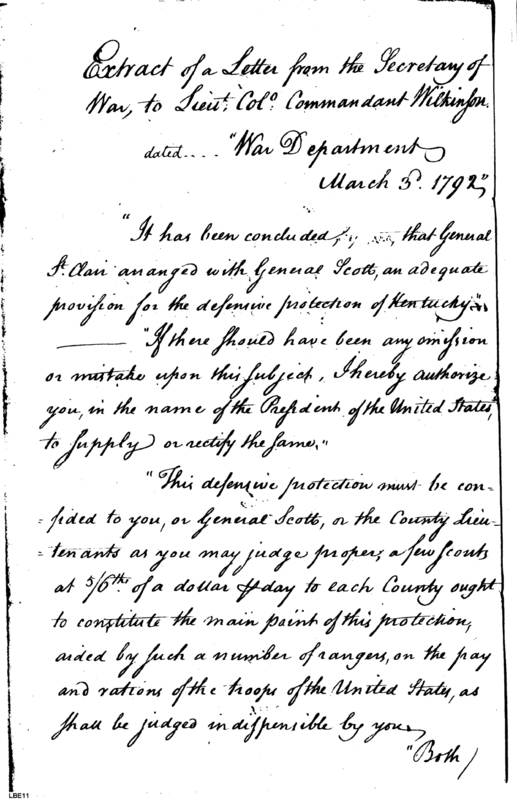 Extract of a Letter from the Secretary of
War, to Lieut. Colo. Commandant Wilkinson.
dated.... "War Department
March 3d. 1792,"
"It has been concluded, that General
St. Clair arranged with General Scott, an adequate
provision for the defensive protection of Kentucky."
"If there should have been any omission
or mistake upon this subject, I hereby authorize
you, in the name of the President of the United States,
to supply or rectify the same."
"This defensive protection must be con-
-fided to you, or General Scott, or the County Lieu-
-tenants as you may judge proper; a few scouts
at 5/6ths. of a dollar ⅌ day to each County ought
to constitute the main point of this protection,
aided by such a number of rangers, on the pay
and rations of the troops of the United States, as
shall be judged indispensible by you,
"Both
LBE11